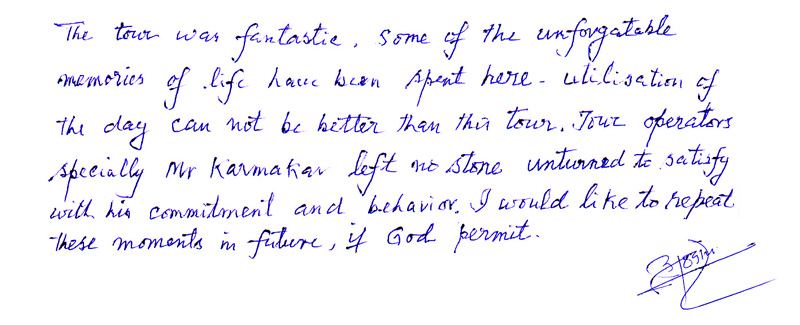 The tour was fantastic. Some of the unforgatable
memories of life have been spent here - utilisation of
the day can not be better than this tour. Tour operators
specially Mr Karmakar left no stone unturned to satisfy
with his commitment and behavior. I would like to repeat
these moments in future, if God permit.